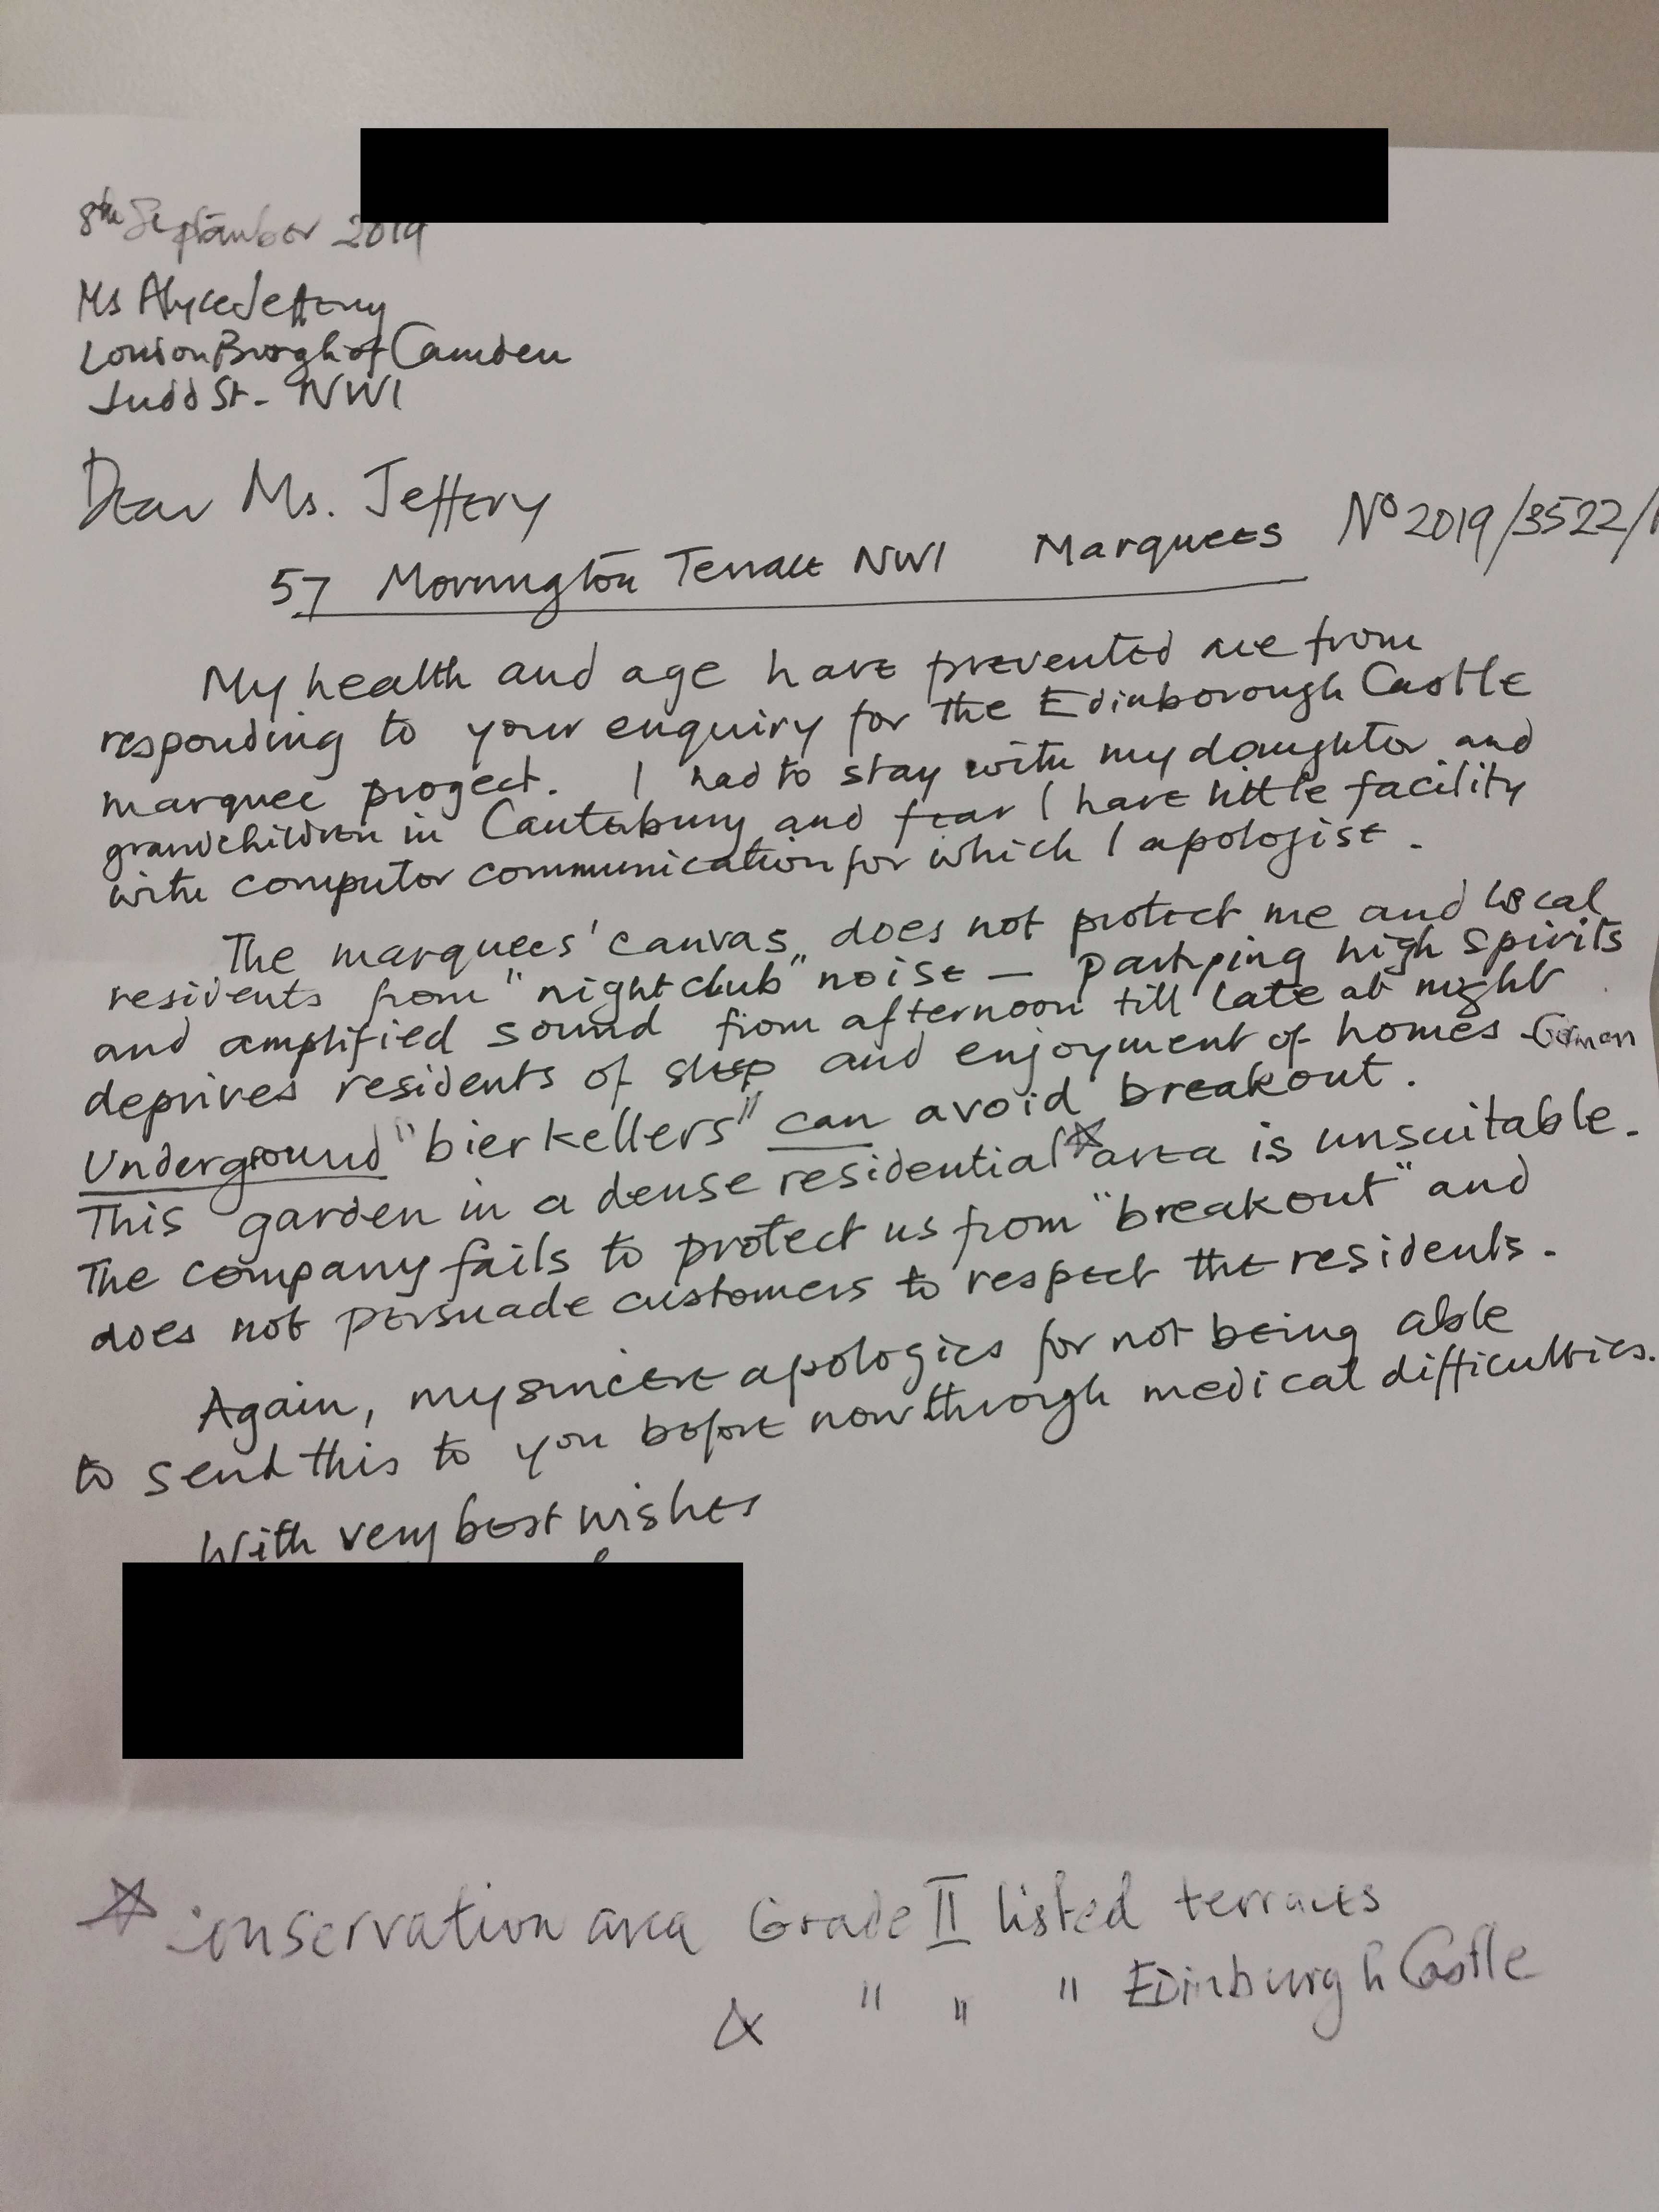 8th September 2019
Ms Alyce Jeffery
London Borogh of Camden
Judd St - NW1
Dear Ms. Jeffery
57 Mornington Terrace NW1 Marquees No 2019/3522/
My health and age have prevented me from
responding to your enquiry for the Edinborough Castle
marquee progect. I had to stay with my daughter and
grandchildren in Canterbury and fear I have little facility
with computor communication for which I apologise.
The marquees' canvas does not protect me and local
residents from "nightclub" noise — partying high spirits
and amplified sound from afternoon till late at night
deprives residents of sleep and enjoyment of homes - German
Underground "bierkellers" can avoid breakout.
This garden in a dense residential ☆ area is unsuitable.
The company fails to protect us from "breakout" and
does not persuade customers to respect the residents.
Again, my sincere apologies for not being able
to send this to you before now through medical difficulties.
With very best wishes
☆ conservation area Grade II listed terraces
& " " " Edinburgh Castle